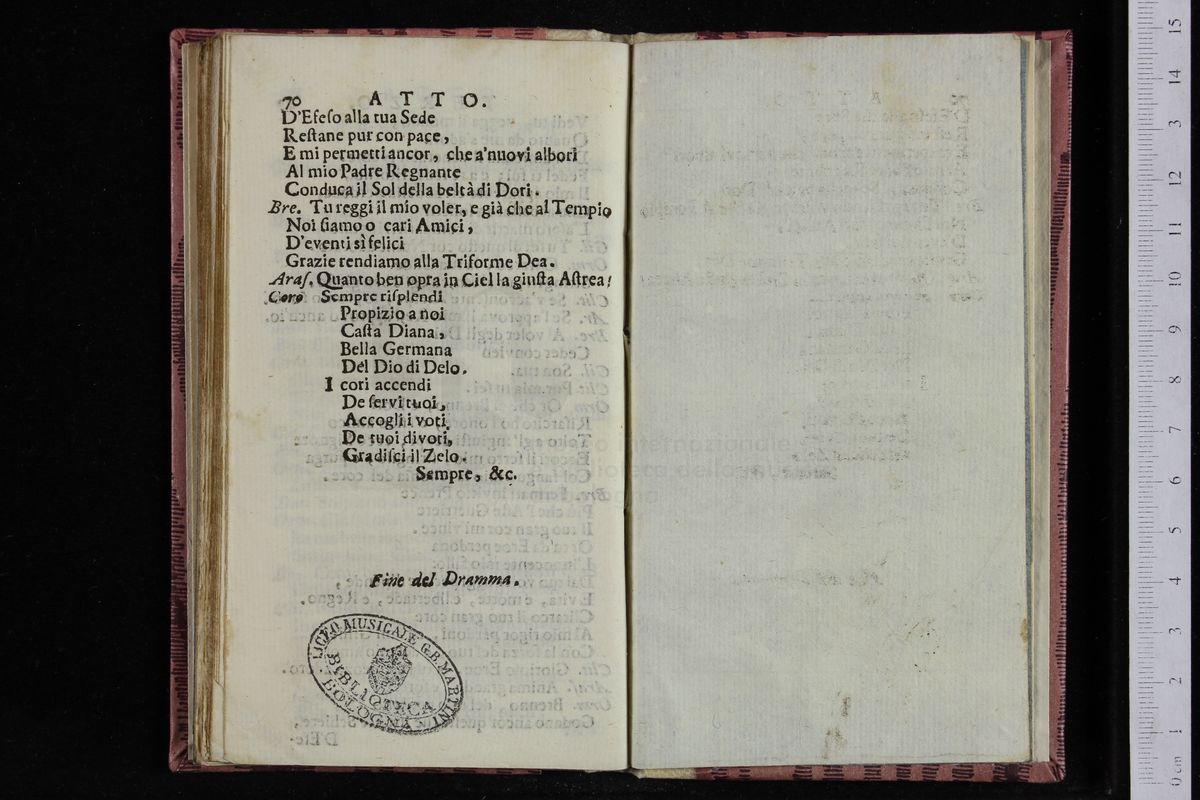 70 ATTO.
D'Efeſo alla tua Sede
Reſtane pur con pace,
E mi permetti ancor, che a'nuovi albori
Al mio Padre Regnante
Conduca il Sol della beltà di Dori.
Bre. Tu reggi il mio voler, e già che al Tempio
Noi ſiamo o cari Amici,
D'eventi sì felici
Grazie rendiamo alla Triforme Dea.
Araſ. Quanto ben opra in Ciel la giuſta Aſtrea!
Coro Sempre riſplendi
Propizio a noi
Caſta Diana,
Bella Germana
Del Dio di Delo.
I cori accendi
De ſervi tuoi,
Accogli i voti
De tuoi divoti,
Gradiſci il Zelo.
Sempre, &c.
Fine del Dramma.
LICEO MUSICALE G.B. MARTINI
BIBLIOTECA
BOLOGNA
internazionale
biblioteca della musica